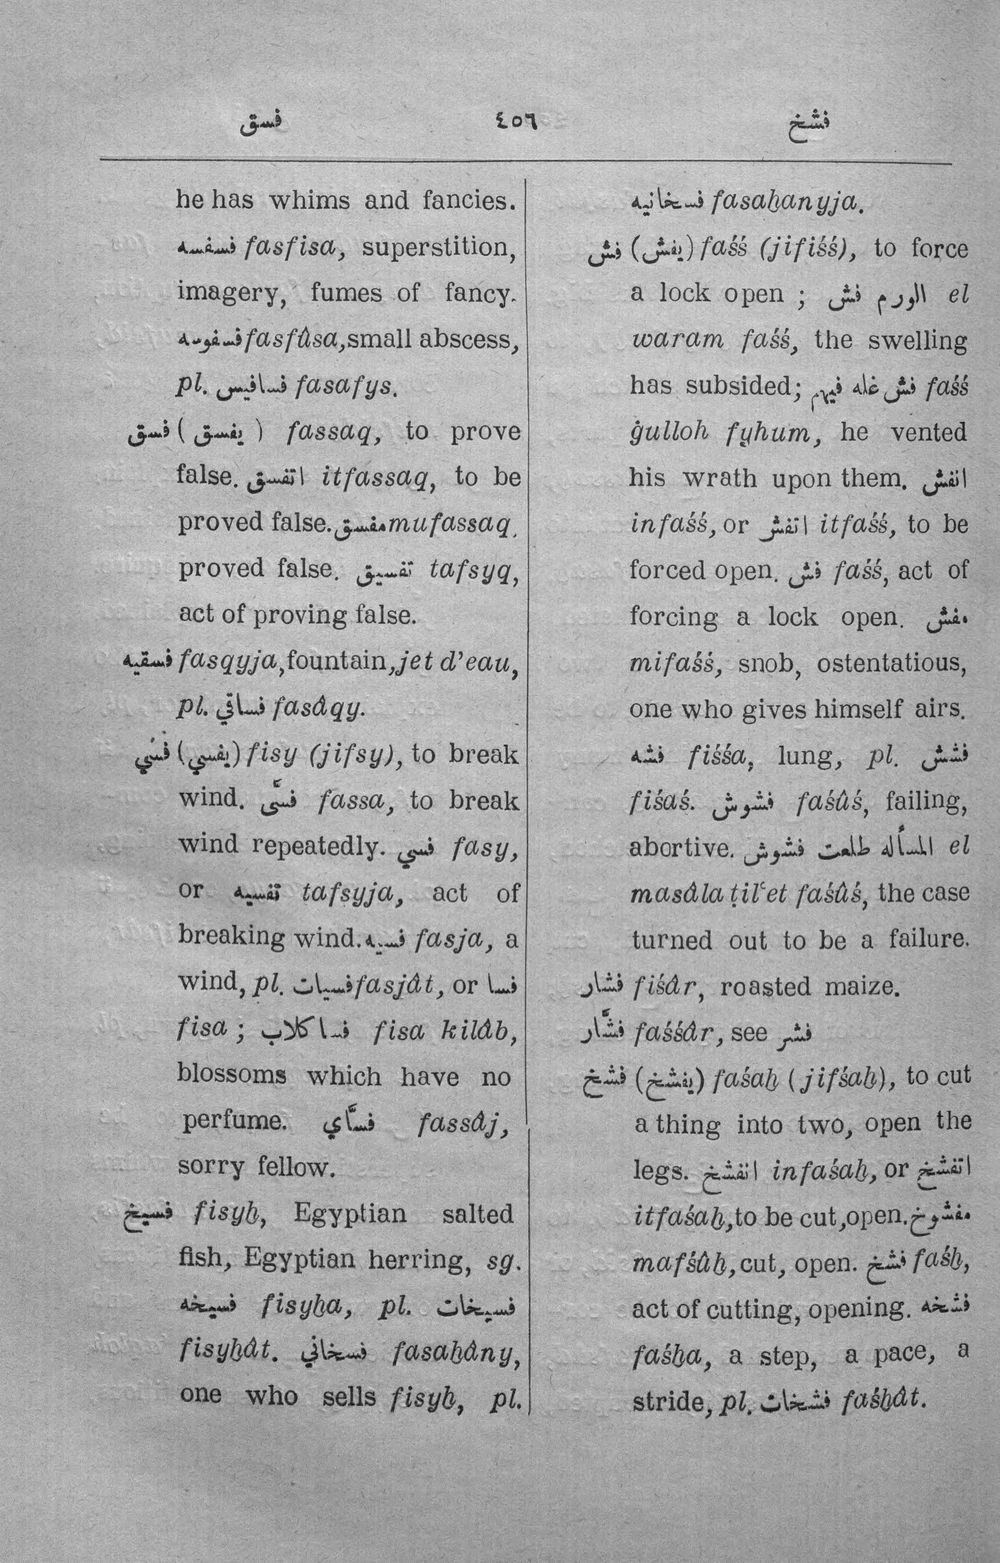 فسق ٤٥٦ فشخ
he has whims and fancies.
فسفسه fasfisa, superstition,
imagery, fumes of fancy.
فسفوسه fasfûsa, small abscess,
pl. فسافيس fasafys.
فسق ( يفسق ) fassaq, to prove
false. اتفسق itfassaq, to be
proved false. مفسق mufassaq,
proved false. تفسيق tafsyq,
act of proving false.
فسقيه fasqyja, fountain, jet d'eau,
pl. فساقي fasâqy.
فسي (يفسي) fisy (jifsy), to break
wind. فسّى fassa, to break
wind repeatedly. فسي fasy,
or تفسيه tafsyja, act of
breaking wind. فسيه fasja, a
wind, pl. فسيات fasjât, or فسا
fisa ; فسا كلاب fisa kilâb,
blossoms which have no
perfume. فسّاي fassâj,
sorry fellow.
فسيخ fisyḫ, Egyptian salted
fish, Egyptian herring, sg.
فسيخه fisyḫa, pl. فسيخات
fisyḫât. فسخاني fasaḫâny,
one who sells fisyḫ, pl.
فسخانيه fasaḫanyja.
فش (يفش) faśś (jifiśś), to force
a lock open ; الورم فش el
waram faśś, the swelling
has subsided; فش غله فيهم faśś
ġulloh fyhum, he vented
his wrath upon them. انفش
infaśś, or اتفش itfaśś, to be
forced open. فش faśś, act of
forcing a lock open. مفش
mifaśś, snob, ostentatious,
one who gives himself airs.
فشه fiśśa, lung, pl. فشش
fiśaś. فشوش faśûś, failing,
abortive. المسأله طلعت فشوش el
masâla ṭilʿet faśûś, the case
turned out to be a failure.
فشار fiśâr, roasted maize.
فشّار faśśâr, see فشر
فشخ (يفشخ) faśaḫ (jifśaḫ), to cut
a thing into two, open the
legs. انفشخ infaśaḫ, or اتفشخ
itfaśaḫ, to be cut, open. مفشوخ
mafśûḫ, cut, open. فشخ faśḫ,
act of cutting, opening. فشخه
faśḫa, a step, a pace, a
stride, pl. فشخات faśḫât.